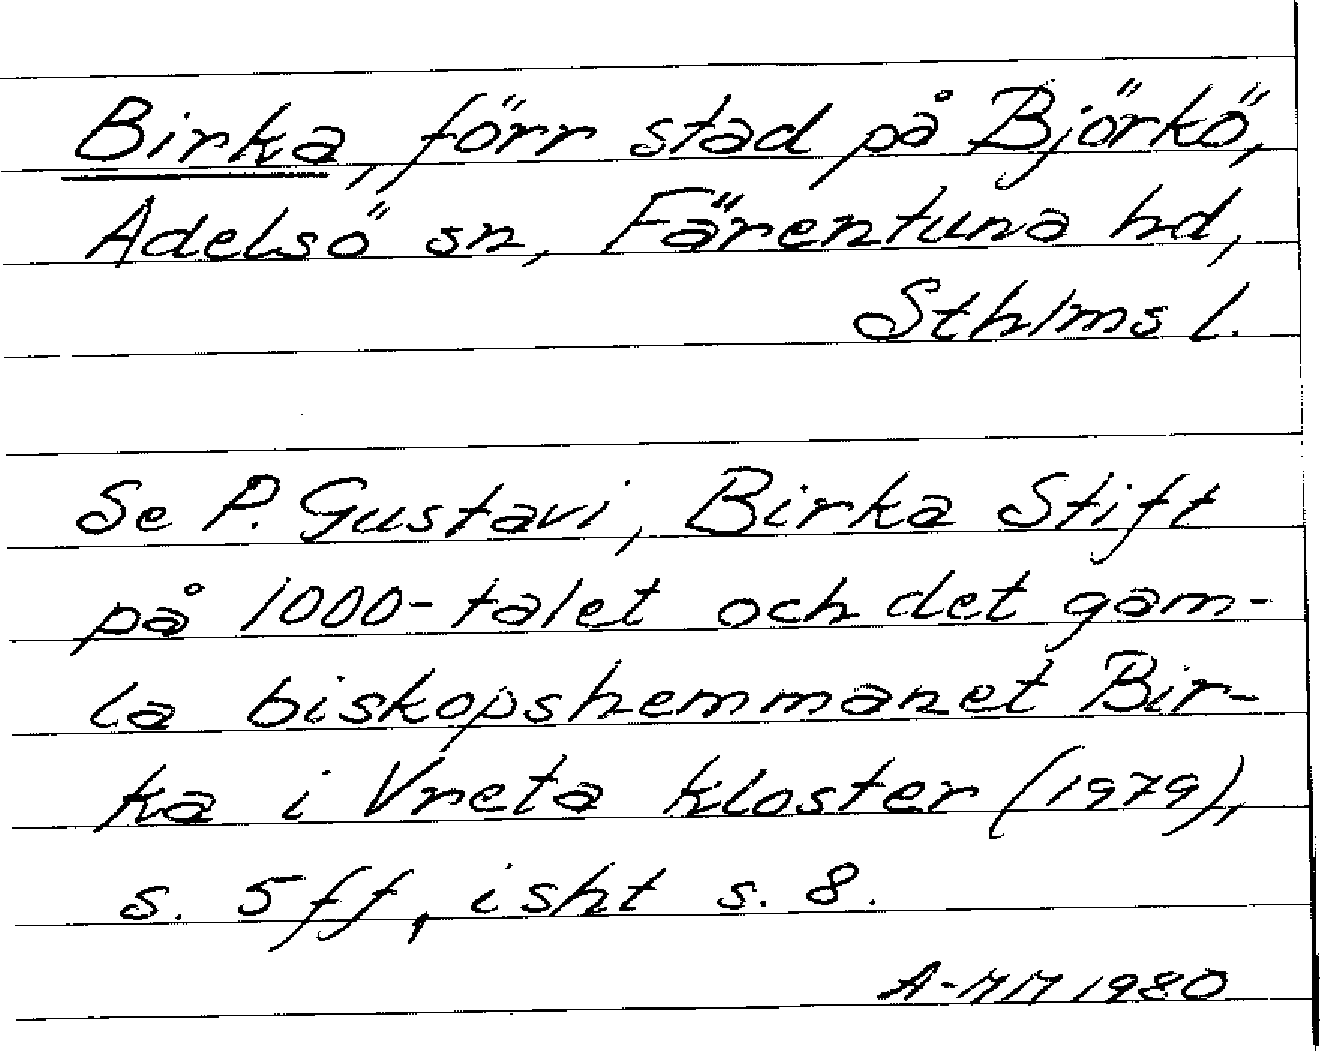 Birka, förr stad på Björkö,
Adelsö sn, Färentuna hd,
Sthlms l.
Se P. Gustavi, Birka Stift
på 1000-talet och det gam-
la biskopshemmanet Bir-
ka i Vreta kloster (1979),
s. 5 ff, isht s. 8.
A-MM 1980